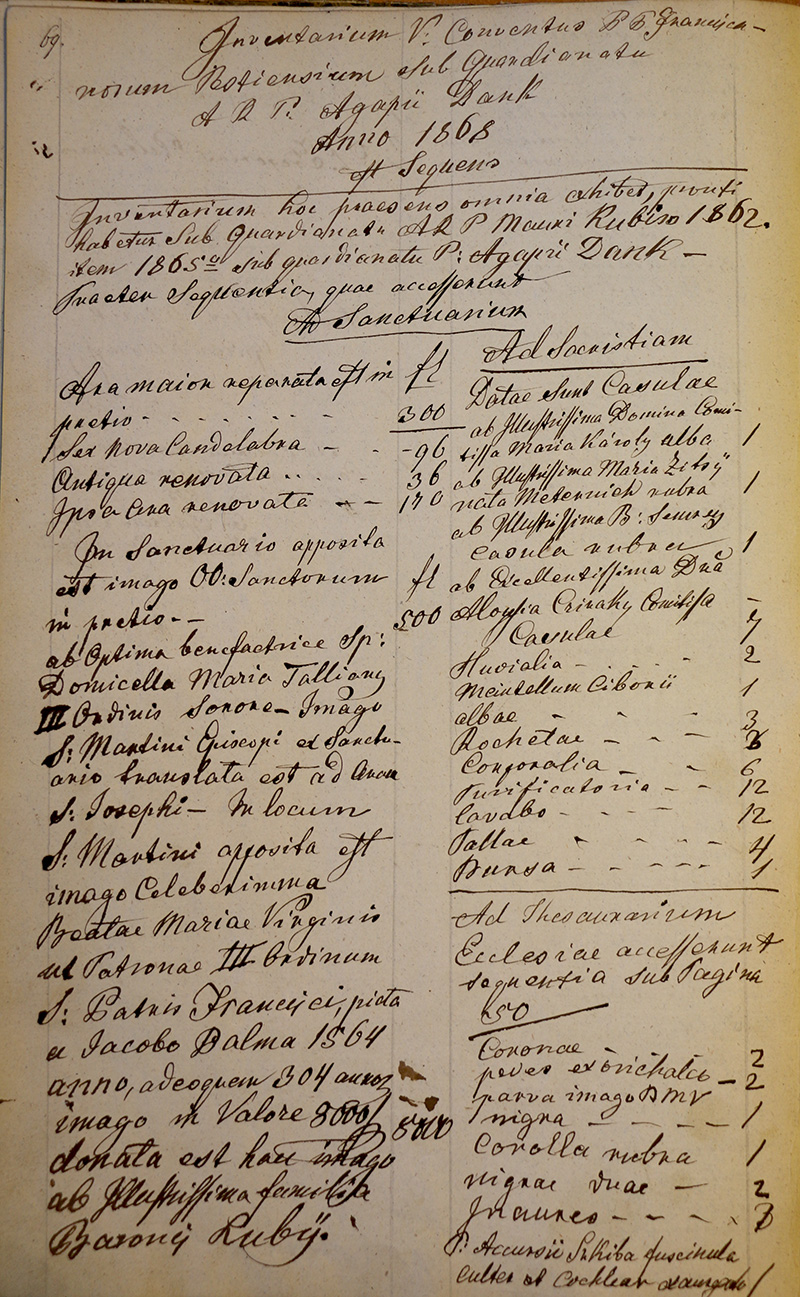 69.
Inventarium V. Conventus P P Francisca-
norum Pestiensium sub Guardianatu
A R P. Agapii Dank
Anno 1868
est Sequens
Inventarium hoc praesens omnia exhibet, prouti
habetur sub Guardianatu A R P Mauri 1862.
item 1865 o sub guardianatu P: Agapii Dank -
Praeter Sequentia, quae accesserunt
Ad Sanctuarium
Ara maior reparata est in fl
pretio - - - - - - - 300
Sex nova Candelabra - - - 96
Antiqua renovata . . . . . 36
Ipsa ara renovata - - 170
In Sanctuario apposita
est imago OO: Sanctorum fl
in pretio. - 500
ab Optima benefactrice Sp:
Domicella Maria Talliany
III Ordinis Sorore - Imago
S: Martini Episcopi ex Sanctu-
ario translata est ad Aram
S: Josephi - In locum
S: Martini apposita est
imago Celeberimma
Beatae Mariae Virginis
ut Patronae III Ordinum
S: Patris Francisci, picta
a Jacobo Palma 1564
anno, adeoquem 304
imago in Valore 8000 f 8000
donata est haec imago
ab Illustrissima familia
Baronis
Ad Sacristiam
Datae sunt Casulae
ab Illustrissima Domina Comi-
tissa Maria Károly alba 1
ab Illustrissima Maria
nata Meternich rubra 1
ab Illustrissima B:
Casula rubra 1
ab Excellentissima Dna -
Aloysia Cziraky Comitissa
Casulae 7
Pluvialia - - - - 2
Mantellum Ciborii 1
albae - - - 3
Rochetae - - -
Corporalia - - 6
Purificatoria - - 12
Lavabo - - - - 12
Pallae - - - - 4
Bursa - - - - - 1
Ad Thesaurarium
Ecclesiae accesserunt
sequentia sub Pagina
50
Coronae - - - 2
ex orichalco - 2
parva imago B M V
nigra - - - - - 1
Corolla rubra 1
nigrae duae - 2
Inaures - - - .
P: Accursii Szkiba fuscinula
culter et Cochlear 1